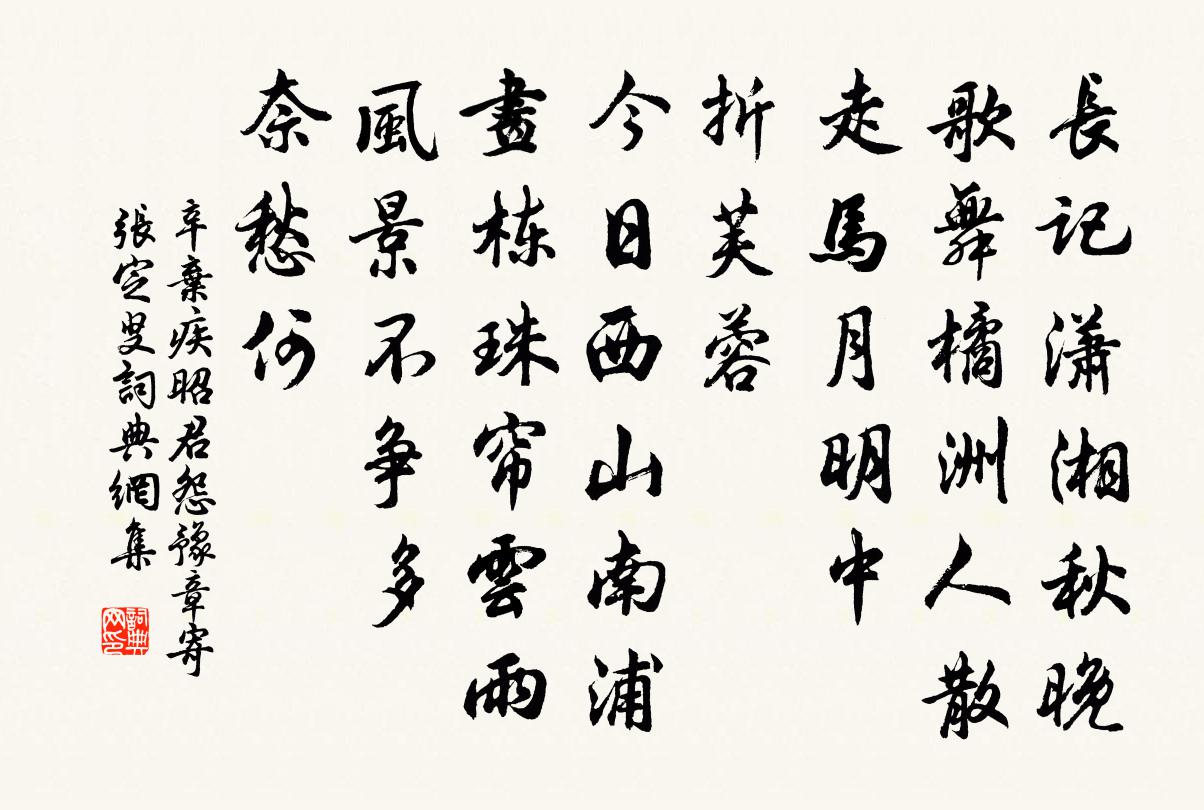 長记潇湘秋晚
歌舞橘洲人散
走馬月明中
折芙蓉
今日西山南浦
畫栋珠帘雲雨
風景不争多
奈愁何
辛棄疾昭君怨豫章寄
張定叟詞典網集
詞典网印